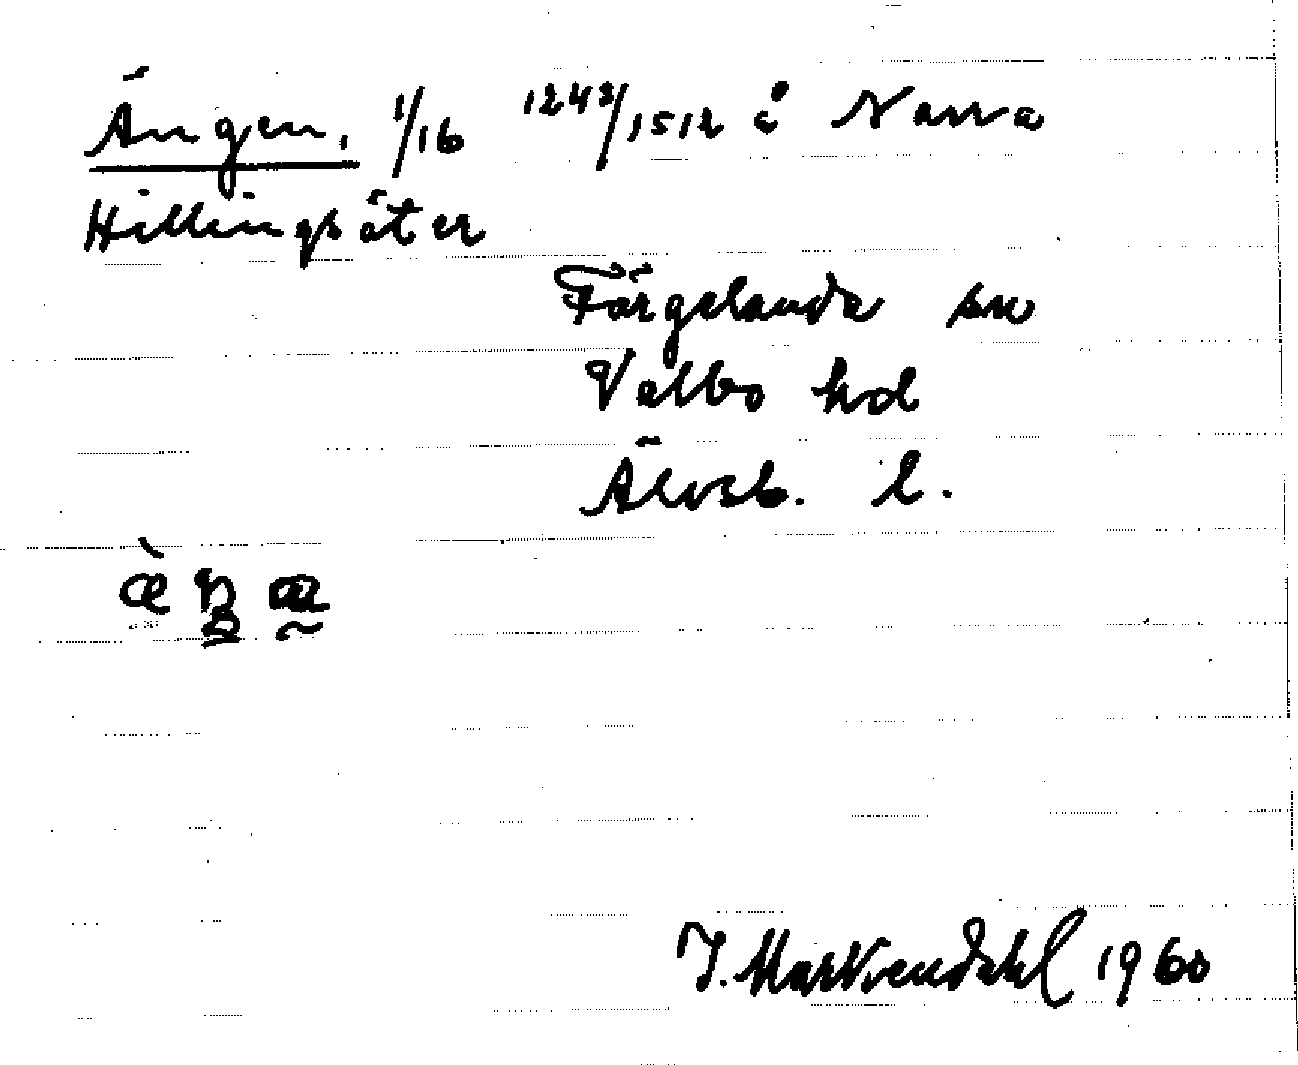 Ängen, 1/16 1243/1512 å Narra
Hillingsäter
Färgelanda sn
Valbo hd
Älvsb. l.
J. Markendahl 1960